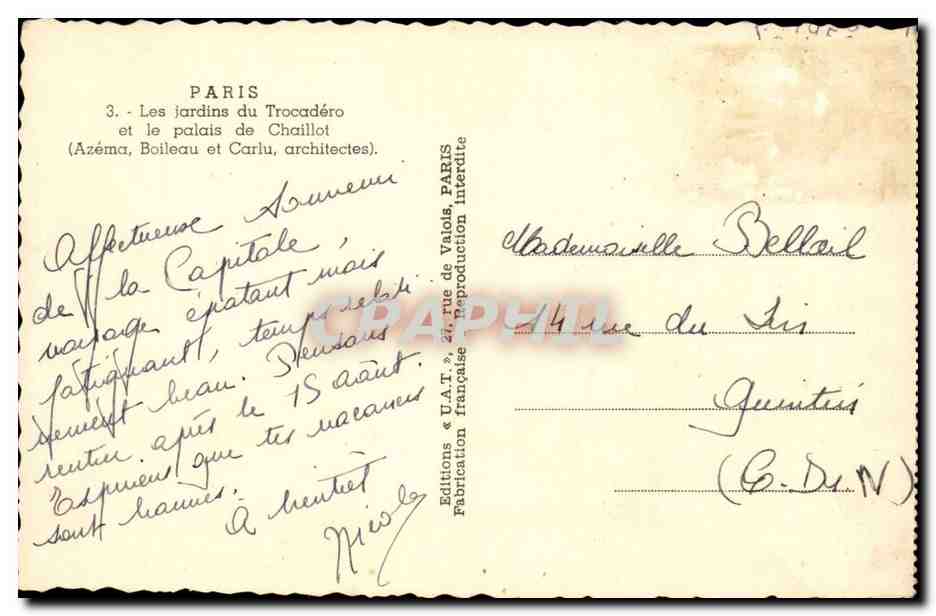 PARIS
3. - Les jardins du Trocadéro
et le palais de Chaillot
(Azéma, Boileau et Carlu, architectes).
Affectueuse souvenir
de la Capitale,
voyage épatant mais
fatiguant, temps relati
vement beau. Pensons
rentrer après le 15 août.
Espérons que tes vacances
sont bonnes.
A bientôt
Nicole
Editions « U.A.T. », 27, rue de Valois, PARIS
Fabrication française - Reproduction interdite
Mademoiselle Bellail
14 rue du
Quintin
(C. du N)
CPAPHIL